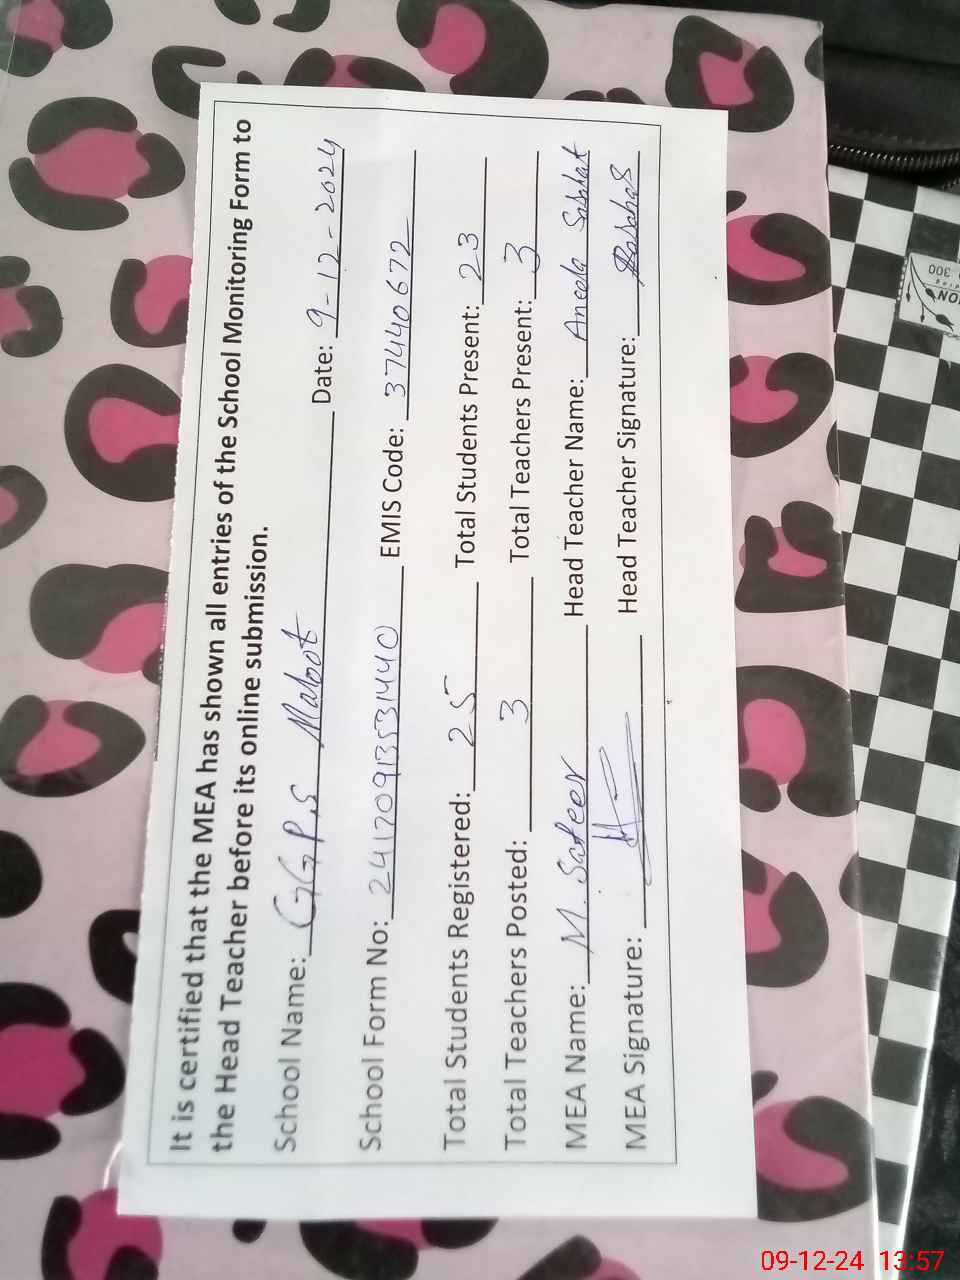 It is certified that the MEA has shown all entries of the School Monitoring Form to
the Head Teacher before its online submission.
School Name: GGPS Maboot Date: 9-12-2024
School Form No: EMIS Code: 37440672
Total Students Registered: 25 Total Students Present: 23
Total Teachers Posted: 3 Total Teachers Present: 3
MEA Name: M. Safeer Head Teacher Name: Aneela
MEA Signature: Head Teacher Signature:
300
09-12-24 13:57